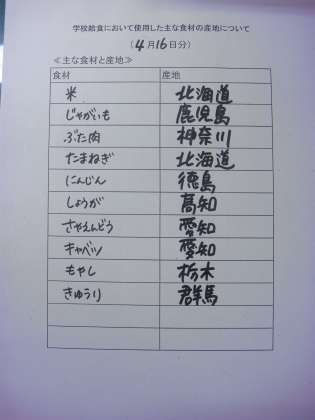 学校給食において使用した主な食材の産地について
(4月16日分)
≪主な食材と産地≫
食材 産地
米 北海道
じゃがいも 鹿児島
ぶた肉 神奈川
たまねぎ 北海道
にんじん 徳島
しょうが 高知
さやえんどう 愛知
キャベツ 愛知
もやし 栃木
きゅうり 群馬